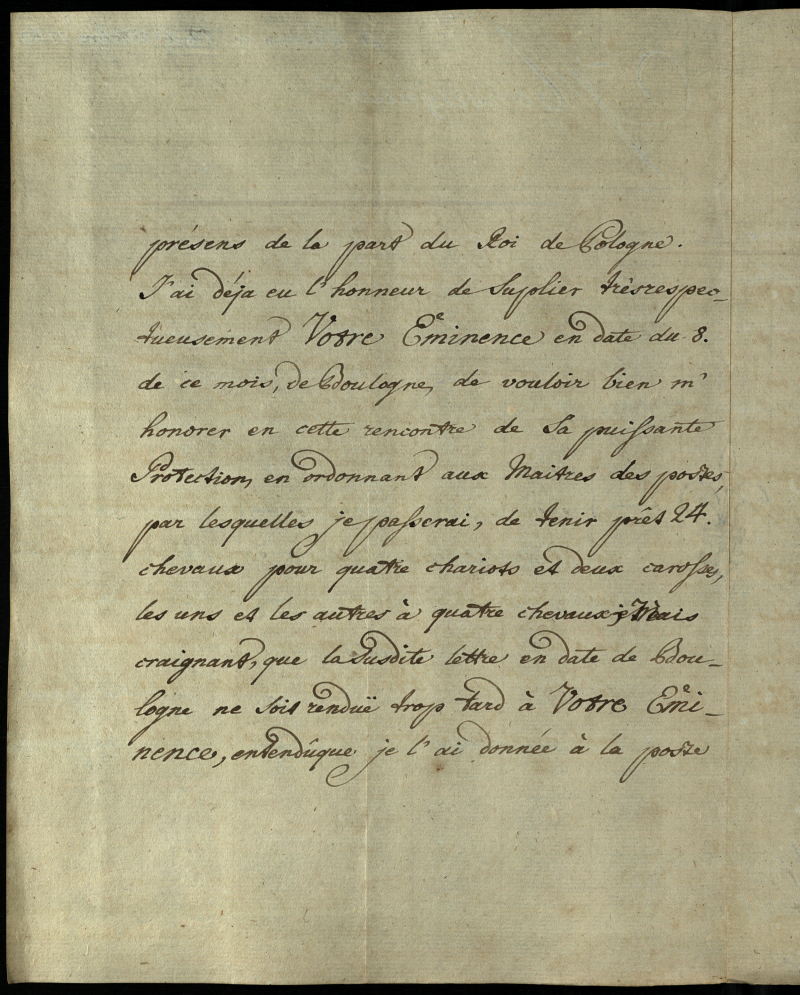 présens de la part du Roi de Pologne.
J'ai déja eu l'honneur de Suplier trèsrespec-
tueusement Votre Eminence en date du 8.
de ce mois, de Boulogne, de vouloir bien m'
honorer en cette rencontre de Sa puissante
Protection, en ordonnant aux Maitres des postes,
par lesquelles je passerai, de tenir prêt 24.
chevaux pour quatre chariots et deux carosses,
les uns et les autres à quatre chevaux; Mais
craignant, que la Susdite lettre en date de Bou-
logne ne soit renduë trop tard à Votre Emi-
nence, entendûque je l'ai donnée à la poste